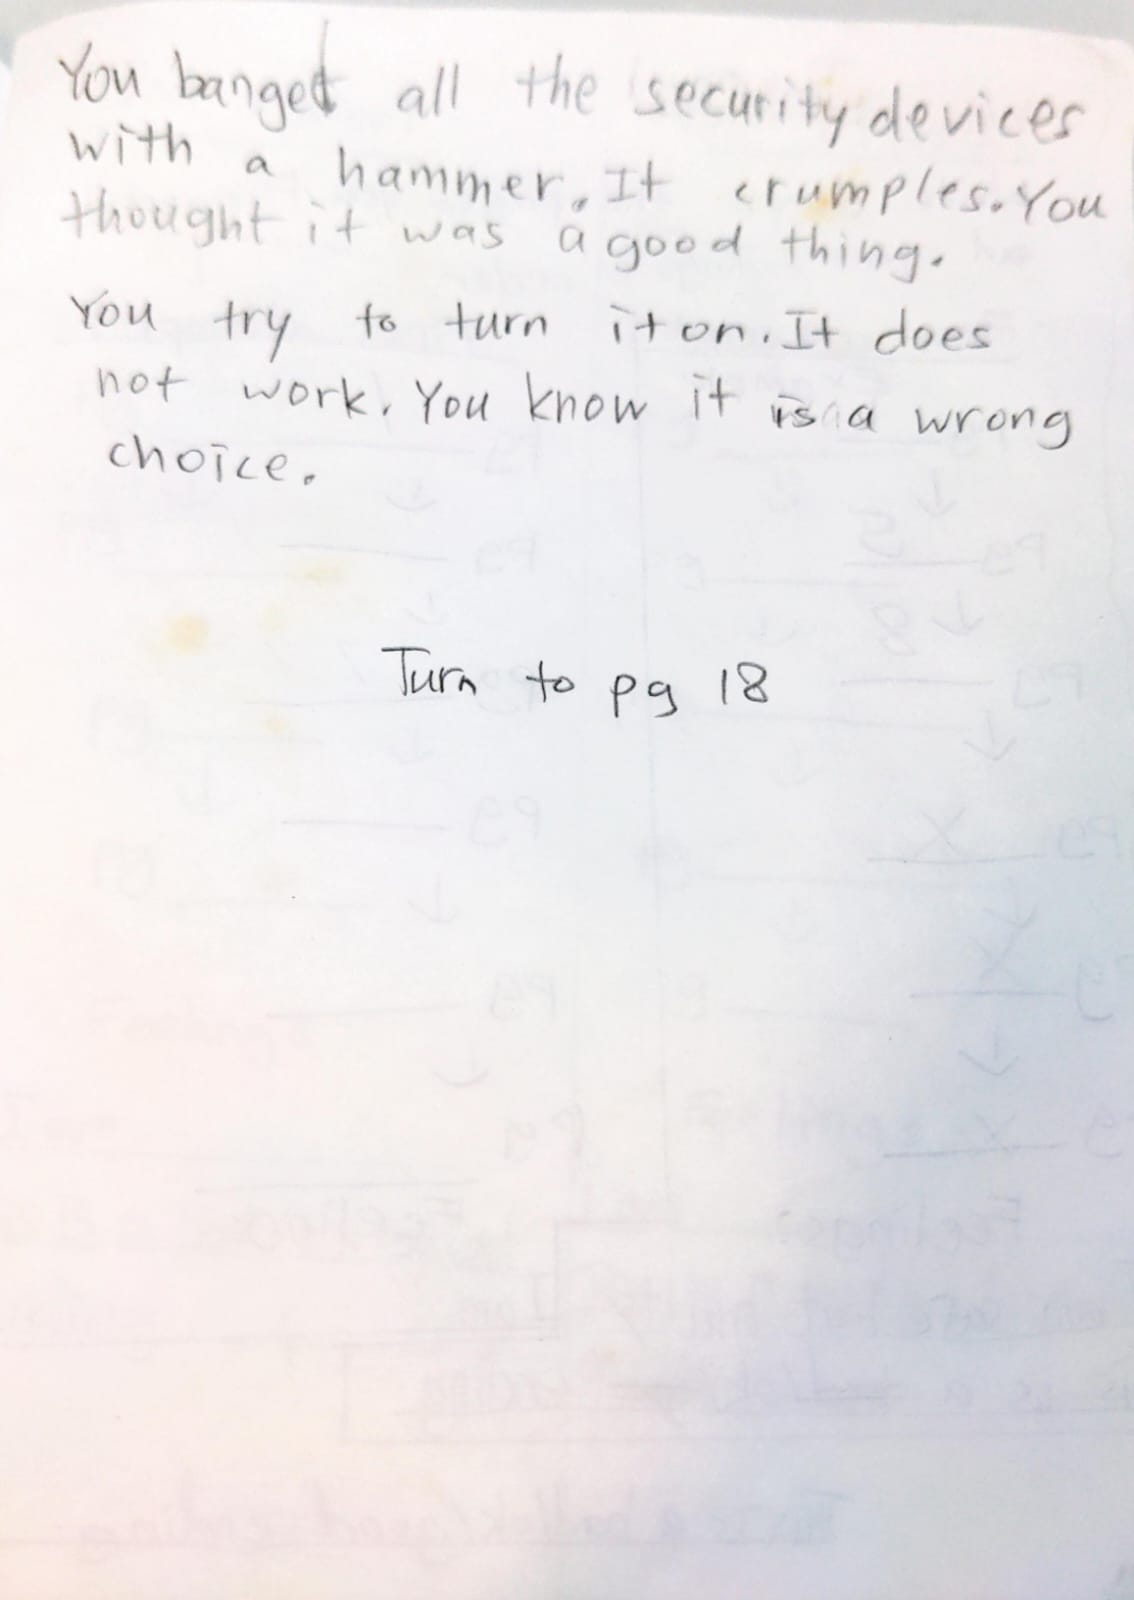 You banged all the security devices
with a hammer. It crumples. You
thought it was a good thing.
You try to turn it on. It does
not work. You know it is a wrong
choice.
Turn to pg 18